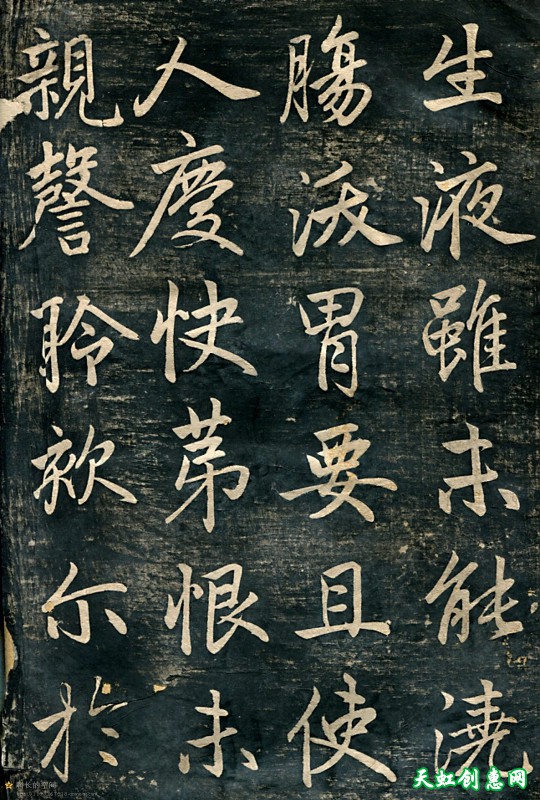 生液雖未能澆
腸沃胃要且使
人慶快苐恨未
親謦聆欬尔於
天虹创惠网